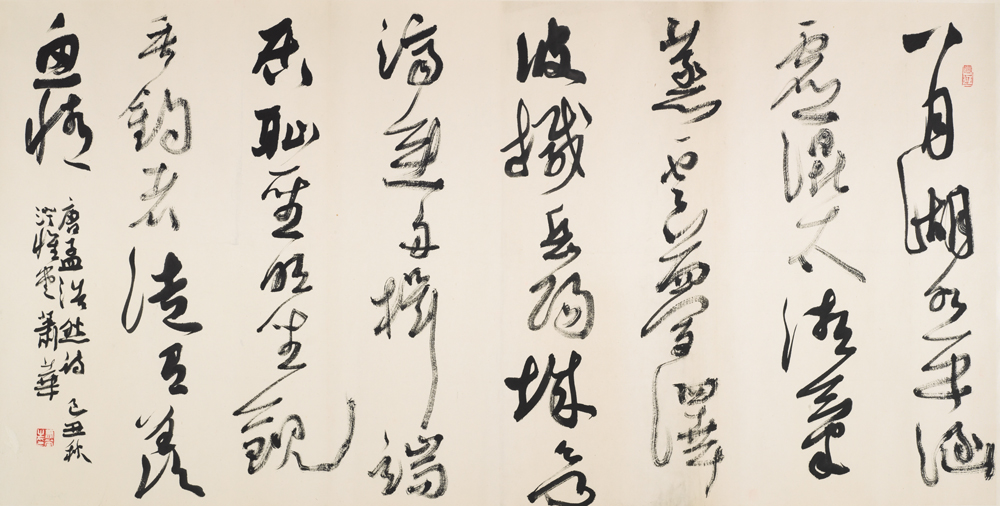 八月湖水平涵
虛混太清氣
蒸雲夢澤
波撼岳陽城欲
濟無舟楫端
居耻聖明坐觀
垂釣者徒有羨
魚情
唐孟浩然詩 己丑秋
蕭華